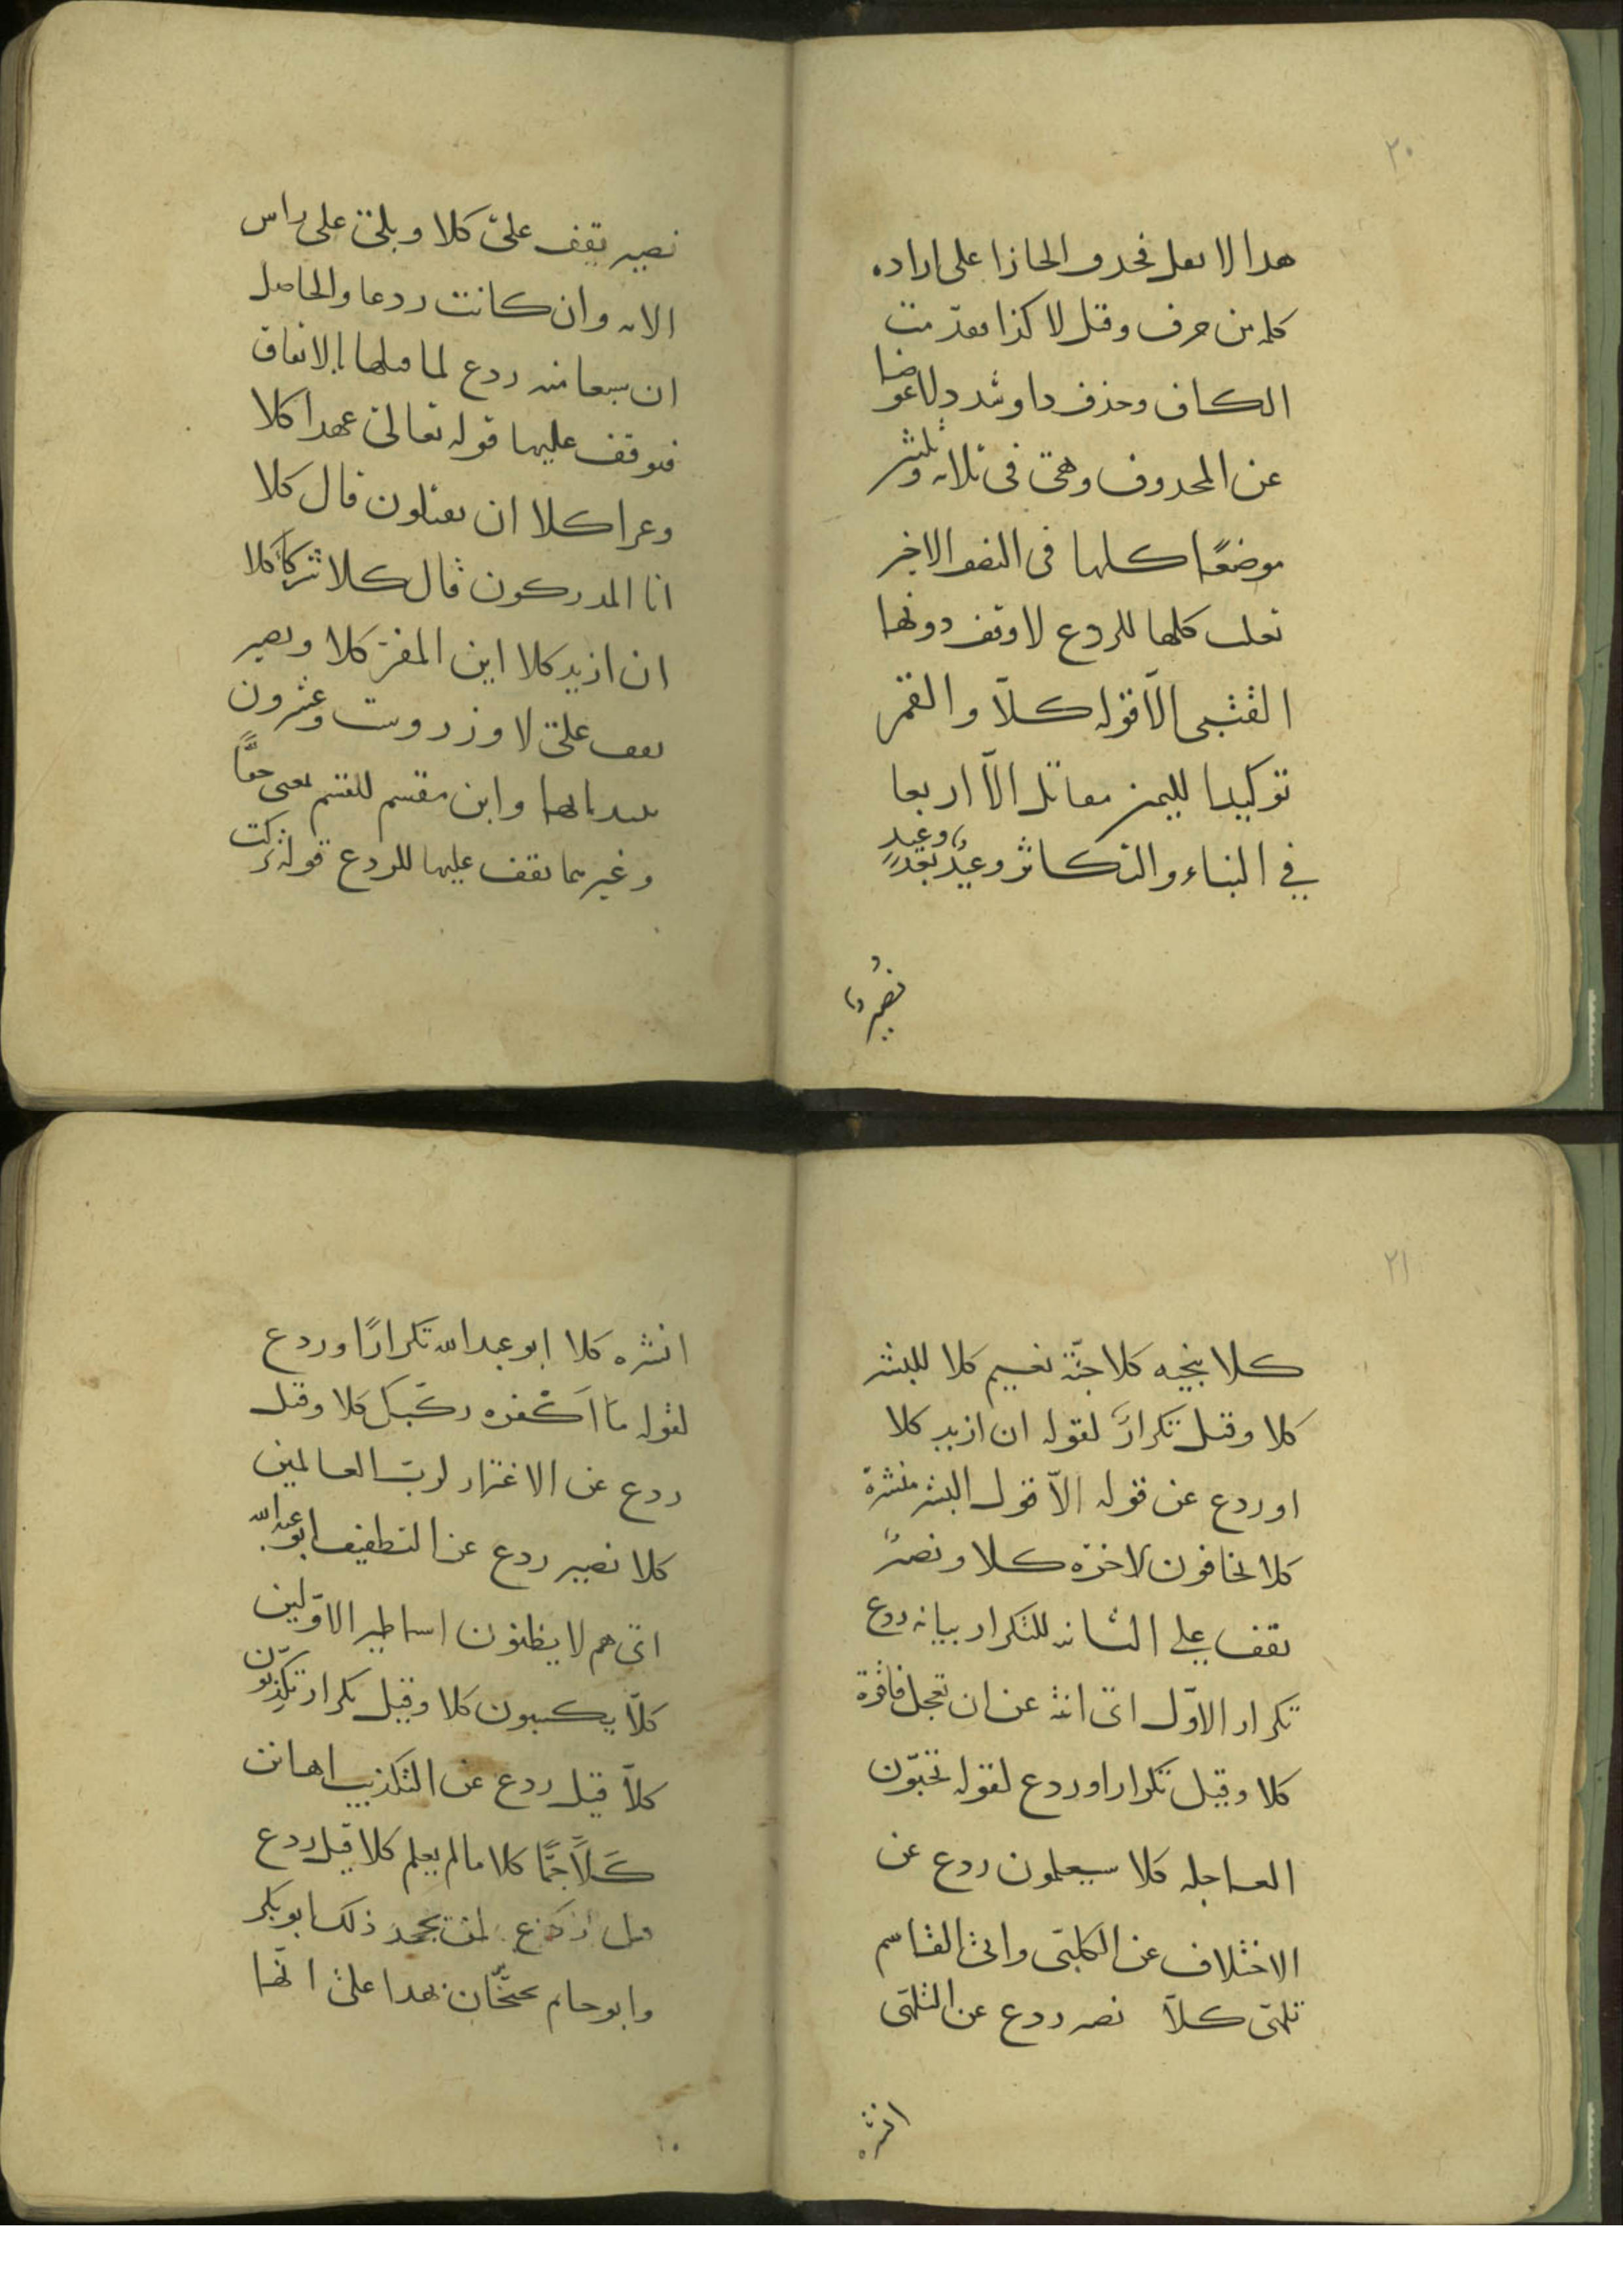 ٢٠
هذا لا يعل فحذف الحاذا على اراده
كلمه من حرف وقيل لا كذا فقدّمت
الكاف وحذف ذا وشدد لا عوضا
عن المحذوف وهي في ثلاثه وثلثين
موضعًا كلها في النصف الاخير
ثعلب كلها للردع لا وقف دونها
القتبي الّا قوله كلّا والقمر
توكيدا لليمين مقاتل الّا اربعا
في النباء والتكاثر وعيدٌ بعد وعيدٍ
نصير
نصير يقف على كلا وبلى على راس
الايه وان كانت ردعا والحاصل
ان سبعا منه ردع لما قبلها بالاتفاق
فتوقف عليها قوله تعالى عهدا كلا
وعزا كلا ان يقتلون قال كلا
انا المدركون قال كلا شركآء كلا
ان ازيد كلا اين المفر كلا ونصير
يقف على لا وزر وست وعشرون
وابن مقسم للقسم بمعنى حقًّا
وغيرهما يقف عليها للردع قوله تركت
٢١
كلا ينجيه كلا جنّة نعيم كلا للبشر
كلا وقيل تكرارٌ لقوله ان ازيد كلا
او ردع عن قوله الّا قول البشر منشرة
كلا يخافون الاخرة كلا ونصير
يقف على الثانيه للتكرار بيانه ردع
تكرار الاوّل اى انته عن ان تعجل فاقرة
كلا وقيل تكرارا وردع لقوله تحبّون
العاجله كلا سيعلمون ردع عن
الاختلاف عن الكلبى وابى القاسم
تلهّى كلّا نصير ردع عن التلهّى
انشره
انشره كلا ابو عبد الله تكرارًا وردع
لقوله ما اَكْفره ركّبك كلا وقيل
ردع عن الاغترار لرب العالمين
كلا نصير ردع عن التطفيف ابو عبد الله
اى هم لا يظنون اساطير الاوّلين
كلّا يكسبون كلا وقيل تكرار تكذبون
كلّا قيل ردع عن التكذيب اهانن
كَلَّا جَمًّا كلا ما لم يعلم كلا قيل ردع
لمن يجحد ذلك ابو بكر
وابو حاتم يحتجّان بهذا على انّها